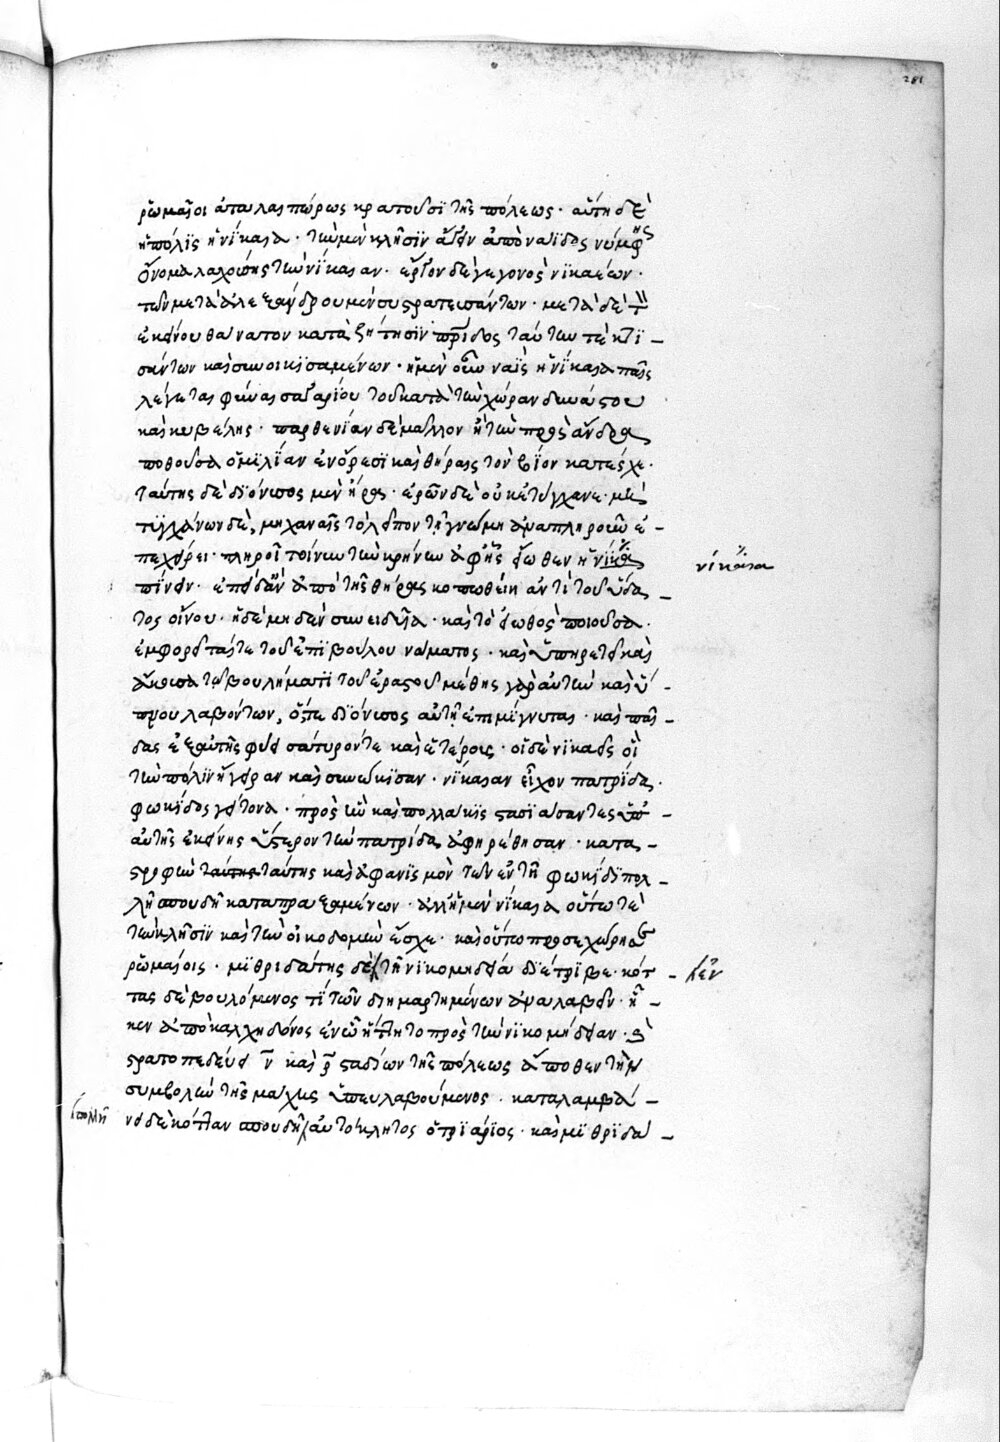 281
ῥωμαῖοι ἀταλαιπώρως κρατοῦσϊ τῆς πόλεως · αὕτη δὲ
ἡ πόλϊς ἡ νίκαια · τὴν μὲν κλῆσϊν ἄγειν ἀπὸ ναΐδος νύμφης
ὄνομα λαχούσης τὴν νίκαιαν · ἔργον δὲ γεγονὸς νϊκαέων ·
τῶν μετὰ ἀλεξάνδρου μὲν συστρατευσάντων · μετὰ δὲ τὸν
ἐκείνου θάνατον κατὰ ζήτησϊν πρίδος ταύτην τὲ κτϊ
σάντων καὶ συνοικϊσαμένων · ἡ μὲν οὖν ναῒς ἡ νίκαια παῖς
λέγεται φῦναι σαγαρίου τοῦ κατὰ τὴν χώραν δυνάστου
καὶ κυβέλης · παρθενίαν δὲ μᾶλλον ἢ τὴν πρὸς ἄνδρα
ποθοῦσα ὁμϊλίαν ἐν ὄρεσϊ καὶ θήραις τὸν βίον κατεῖχε ·
ταύτης δὲ δϊόνυσος μὲν ἤρα · ἐρῶν δὲ οὐκ ἐτύγχανε · μὴ
τυγχάνων δὲ, μηχαναῖς τὸ λεῖπον τῇ γνώμῃ ἀναπληροῦν ἐ
πεχείρει · πληροῖ τοίνυν τὴν κρήνην ἀφ' ἧς εἴωθεν ἡ νίκαια
νίκαια
πίνειν · ἐπειδὰν ἀπὸ τῆς θήρας κοπωθείη ἀντὶ τοῦ ὕδα
τος οἴνου · ἡ δὲ μηδὲν συνειδυῖα · καὶ τὸ εἰωθὸς ποιοῦσα ·
ἐμφορεῖταί τε τοῦ ἐπϊβούλου νάματος · καὶ ὑπηρετεῖ καὶ
ἄκουσα τῷ βουλήματϊ τοῦ ἐραστοῦ μέθης γὰρ αὐτὴν καὶ ὕ
πνου λαβόντων, ὅ,τε δϊόνυσος αὐτῇ ἐπιμίγνυται · καὶ παῖ
δας ἐξ αὐτῆς φύει σάτυρόν τε καὶ ἑτέρους · οἱ δὲ νϊκαεῖς οἳ
τὴν πόλϊν ἤγειραν καὶ συνῴκϊσαν · νίκαιαν εἶχον πατρίδα ·
φωκίδος γείτονα · πρὸς ἣν καὶ πολλάκϊς στασϊάσαντες ὑπ'
αὐτῆς ἐκείνης ὕστερον τὴν πατρίδα ἀφηρέθησαν · κατα
στροφὴν ταύτης ταύτης καὶ ἀφανϊσμὸν τῶν ἐν τῇ φωκίδϊ πολ
λῇ σπουδῇ καταπραξαμένων · ἀλλ' ἡ μὲν νίκαια οὕτω τὲ
τὴν κλῆσϊν καὶ τὴν οἰκοδομὴν ἔσχε · καὶ οὕτω προσεχώρησε
ῥωμαίοις · μϊθρϊδάτης δὲ τῇ νϊκομηδείᾳ δϊέτρϊβε · κότ
ἐν
τας δὲ βουλόμενος τϊ τῶν διημαρτημένων ἀναλαβεῖν · ἧ
κεν ἀπὸ καλχηδόνος ἐν ᾧ ἥττητο πρὸς τὴν νϊκομήδειαν · καὶ
στρατοπεδεύει ν̅ καὶ ρ̅ σταδίων τῆς πόλεως ἄποθεν τὴν
συμβολὴν τῆς μάχης ὑπευλαβούμενος · καταλαμβά
νει δὲ κότταν σπουδῇ αὐτόκλητος ὁ τρϊάρϊος · καὶ μϊθρϊδά
πολλῇ